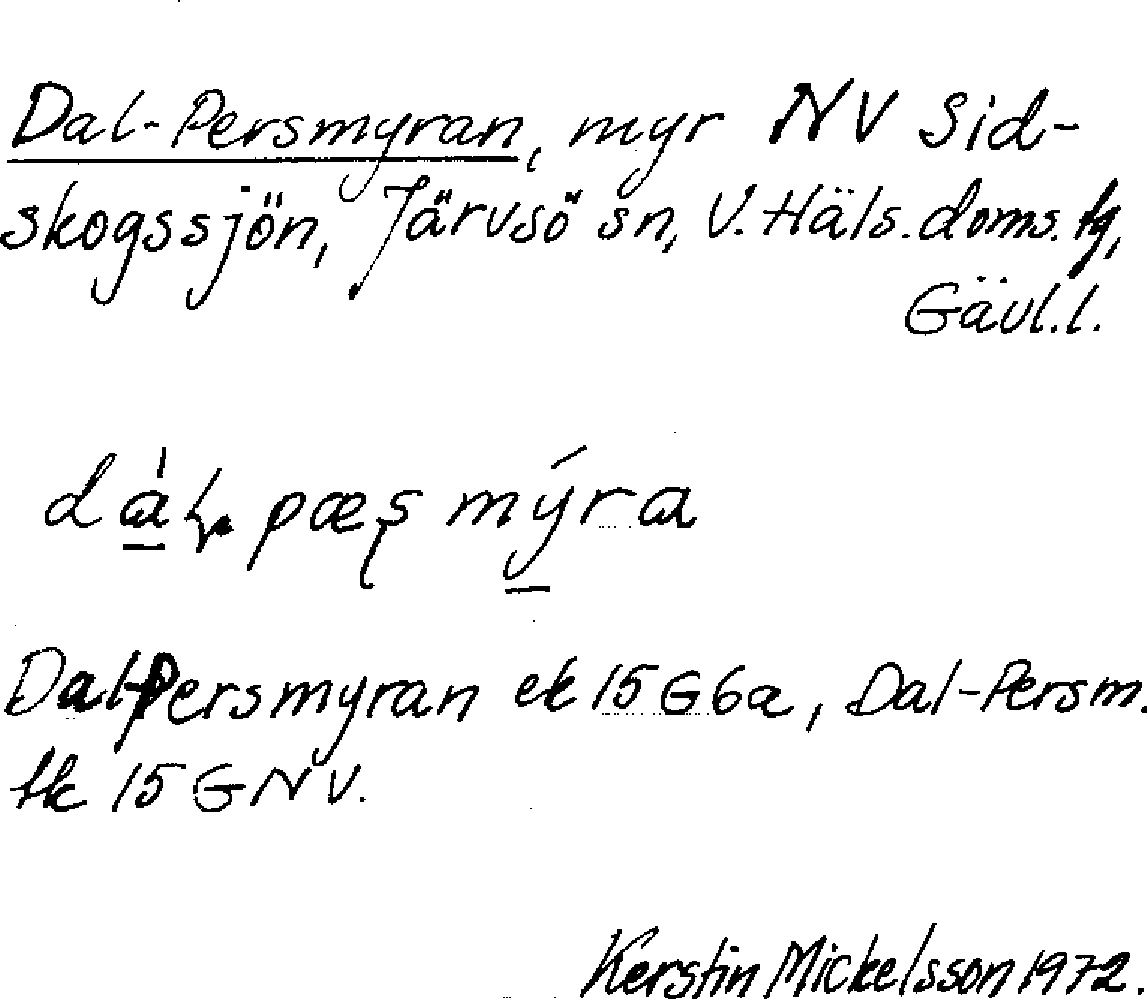 Dal-Persmyran, myr NV Sid-
skogssjön, Järvsö sn, V. Häls. doms. tg,
Gävl. l.
mýra
Dal-Persmyran ek 15 G 6a, Dal-Persm.
tk 15 G NV.
Kerstin Mickelsson 1972.